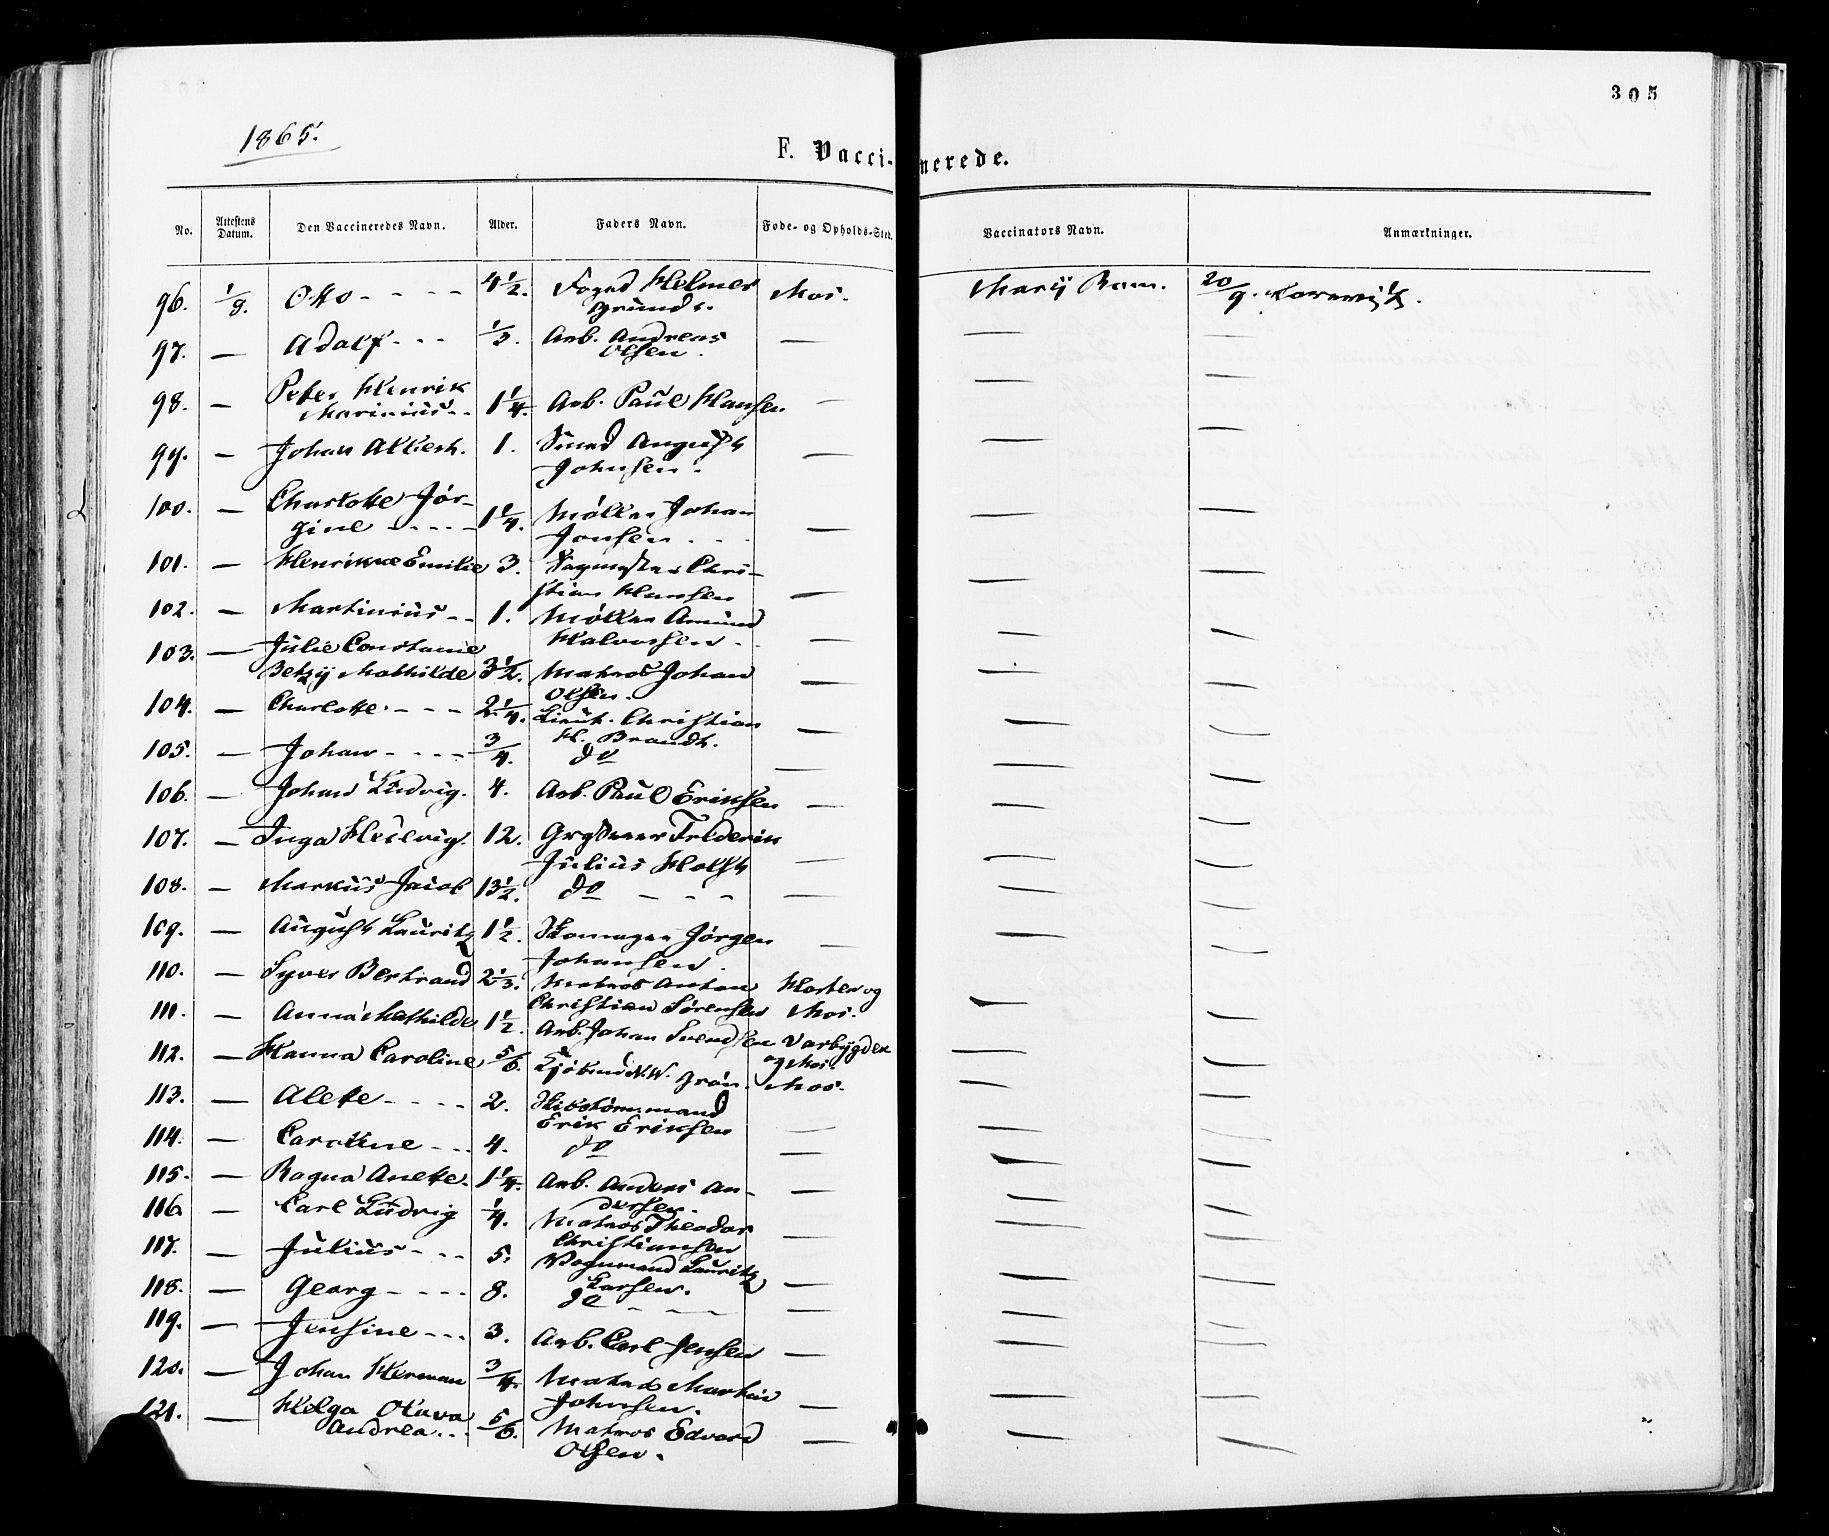 305
1865.
F. Vaccinerede.
No. Attestens Datum. Den Vaccineredes Navn. Alder. Faders Navn. Føde- og Opholds-Sted. Vaccinators Navn. Anmærkninger.
96. 1/9. Otto - - - - 4 1/2. Foged Helmer Mos. Mary Ram. 20/9.
Grund
97. — Adolf - - - 1/3. Arb. Andreas — — —
Olsen.
98. — Peter Henrik
Marinius - - 1 1/4. Arb. Paul Hansen — — —
99. — Johan Albert. 1. Smed August — — —
Johnsen.
100. — Charlotte Jør-
gine - - - - 1 1/4. Møller Johan — — —
Jonsen - -
101. — Henrikke Emilie 3. Chri-
stian Hansen — — —
102. — Martinius - - 1. Møller Amund
Halvorsen - — — —
103. — Julie Constanse
Betzy Mathilde 3 1/2. Matros Johan — — —
Olsen.
104. — Charlotte - - - 2 1/4. Lieut. Christian
H. Brandt. — — —
105. — Johan - - - - 3/4. do — — —
106. — Johan Ludvig. 4. Arb. Paul Eriksen — — —
107. — Inga Hedevig. 12. Frederik
Julius Holst — — —
108. — Markus Jacob 13 1/2. do - - - — — —
109. — August Lauritz 1 1/2. Skomager Jørgen — — —
Johansen.
110. — Syver Bertrand 2 1/3. Matros Anton Horten og
Christian Sørensen Mos. — —
111. — Anna Mathilde 1 1/2. Arb. Johan Svendsen Varbygden
og Mos. — —
112. — Hanna Caroline 5/6. Kjøbmd N. W. Grøn. Mos. — —
113. — Alette - - - - 2. Skibstømmermand
Erik Eriksen — — —
114. — Caroline - - - 4. do — — —
115. — Ragna Anette. 1 1/4. Arb. Anders An-
dersen. — — —
116. — Carl Ludvig 1/4. Matros Theodor
Christiansen — — —
117. — Julius - - - 5. Vognmand Lauritz
Larsen. — — —
118. — Georg - - - - 8. do - - - — — —
119. — Jensine - - - 3. Arb. Carl Jensen — — —
120. — Johan Herman 3/4. Matros Martin
Johnsen. — — —
121. — Helga Otava
Andrea - - - 5/6. Matros Edvard — — —
Olsen.